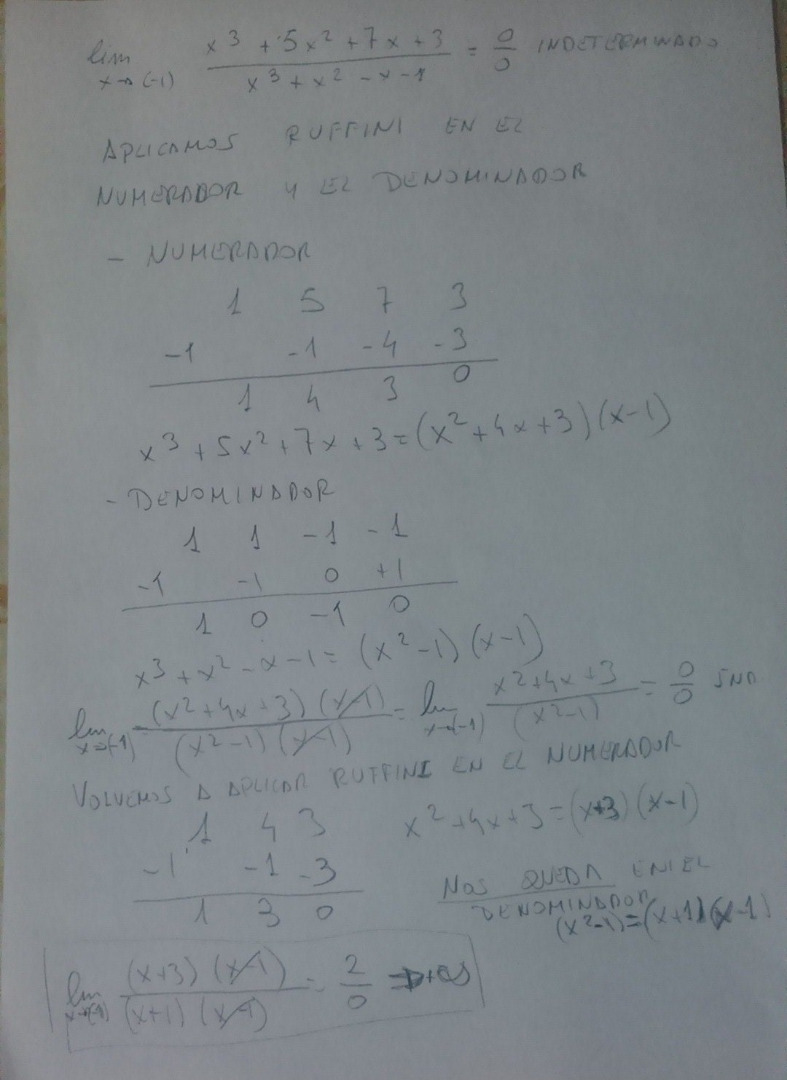 lim x→(-1) (x³ + 5x² + 7x + 3)/(x³ + x² - x - 1) = 0/0 INDETERMINADO
APLICAMOS RUFFINI EN EL
NUMERADOR Y EL DENOMINADOR
- NUMERADOR
1 5 7 3
-1 -1 -4 -3
1 4 3 0
x³ + 5x² + 7x + 3 = (x² + 4x + 3)(x-1)
- DENOMINADOR
1 1 -1 -1
-1 -1 0 +1
1 0 -1 0
x³ + x² - x - 1 = (x² - 1)(x-1)
lim x→(-1) (x² + 4x + 3)(x-1)/(x² - 1)(x-1) = lim x→(-1) (x² + 4x + 3)/(x² - 1) = 0/0 IND
VOLVEMOS A APLICAR RUFFINI EN EL NUMERADOR
1 4 3 x² + 4x + 3 = (x+3)(x-1)
-1 -1 -3
1 3 0
NOS QUEDA EN EL
DENOMINADOR
(x²-1) = (x+1)(x-1)
lim x→(-1) (x+3)(x-1)/(x+1)(x-1) = 2/0 ⇒ +∞